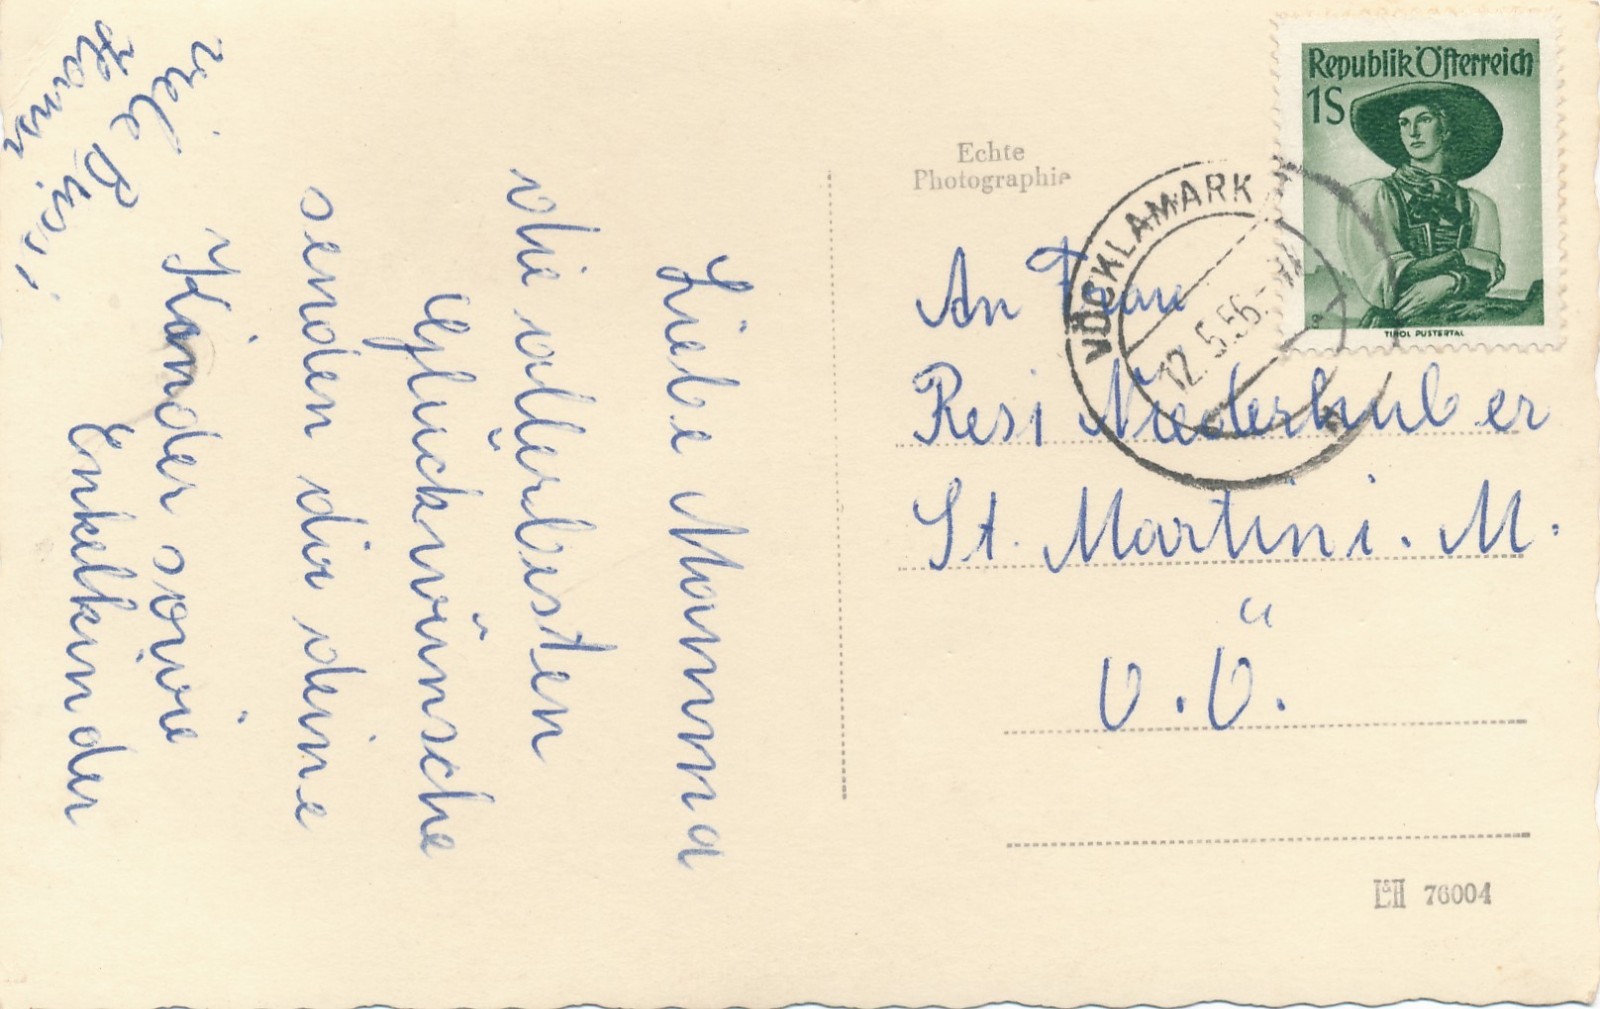 Liebe Mamma
die allerbesten
Glückwünsche
senden dir deine
Kinder sowie
Enkelkinder
viele Bussi
Hansi
Echte
Photographie
Republik Österreich
1S
TIROL PUSTERTAL
VÖCKLAMARKT
12.5.56
An Frau
Resi Niederhuber
St. Martin i. M.
O.Ö.
L&H 76004